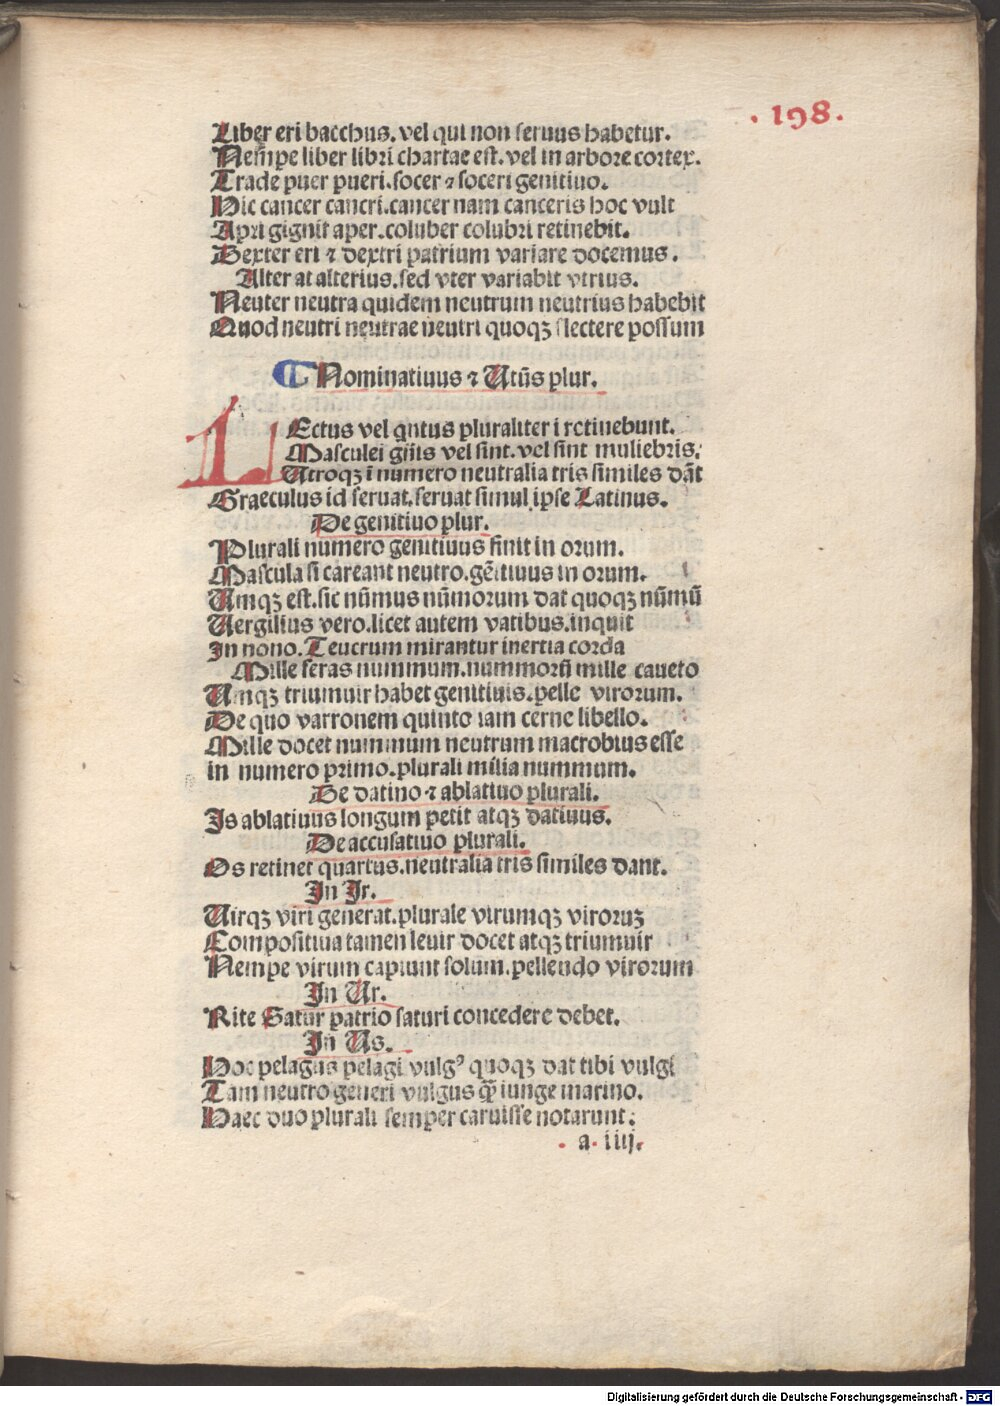 .198.
Liber eri bacchus. vel qui non seruus habetur.
Nempe liber libri chartae est. vel in arbore cortex.
Trade puer pueri. socer ⁊ soceri genitiuo.
Hic cancer cancri. cancer nam canceris hoc vult
Apri gignit aper. coluber colubri retinebit.
Dexter eri ⁊ dextri patrium variare docemus.
Alter at alterius. sed vter variabit vtrius.
Neuter neutra quidem neutrum neutrius habebit
Quod neutri neutrae neutri quoqꝫ flectere possum
Nominatiuus ⁊ Utūs plur.
LEctus vel qntus pluraliter i retinebunt.
Masculei gn̄is vel sint. vel sint muliebris.
Utroqꝫ ī numero neutralia tris similes dāt
Graeculus id seruat. seruat simul ipse Latinus.
De genitiuo plur.
Plurali numero genitiuus finit in orum.
Mascula si careant neutro. gētiuus in orum.
Umqꝫ est. sic nūmus nūmorum dat quoqꝫ nūmū
Uergilius vero. licet autem vatibus. inquit
In nono. Teucrum mirantur inertia corda
Mille feras nummum. nummorū mille caueto
Umqꝫ triumuir habet genitiuis. pelle virorum.
De quo varronem quinto iam cerne libello.
Mille docet nummum neutrum macrobius esse
in numero primo. plurali milia nummum.
De datiuo ⁊ ablatiuo plurali.
Is ablatiuus longum petit atqꝫ datiuus.
De accusatiuo plurali.
Os retinet quartus. neutralia tris similes dant.
In Ir.
Uirqꝫ viri generat. plurale virumqꝫ viroruꝫ
Compositiua tamen leuir docet atqꝫ triumuir
Nempe virum capiunt solum. pellendo virorum
In Ur.
Rite Satur patrio saturi concedere debet.
In Us.
Hoc pelagus pelagi vulgꝰ quoqꝫ dat tibi vulgi
Tam neutro generi vulgus qꝫ iunge marino.
Haec duo plurali semper caruisse notarunt:
.a. iiij.
Digitalisierung gefördert durch die Deutsche Forschungsgemeinschaft - DFG